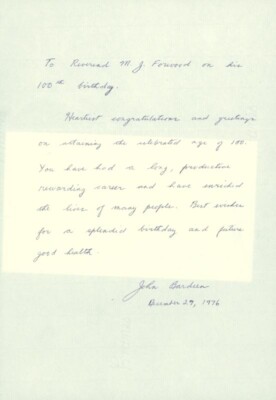 To Reverend M. J. Forwood on his
100th birthday.
Heartiest congratulations and greetings
on attaining the celebrated age of 100.
You have had a long, productive
rewarding career and have enriched
the lives of many people. Best wishes
for a splendid birthday and future
good health.
John Bardeen
December 29, 1976